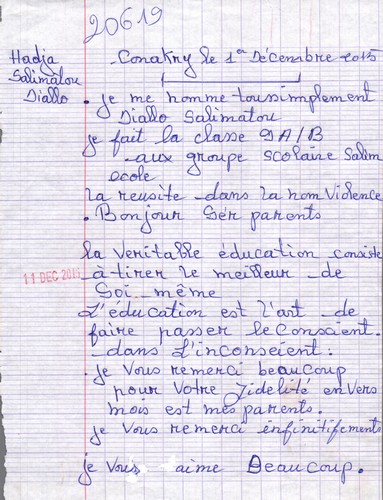 20619
Hadja
Salimatou
Diallo
Conakry le 1er Décembre 2015
. je me nomme toussimplement
Diallo Salimatou
je fait la classe 9A/B
aux groupe scolaire Salim
école
La reusite dans la non Violence
. Bonjour Ser parents
la veritable éducation consiste
11 DEC 2015
à tirer le meilleur de
Soi même
L'éducation est l'art de
faire passer le conscient.
dans l'inconscient.
. je vous remerci beaucoup
pour votre fidelité envers
mois est mes parents.
je vous remerci infinitifements
je vous aime Beaucoup.